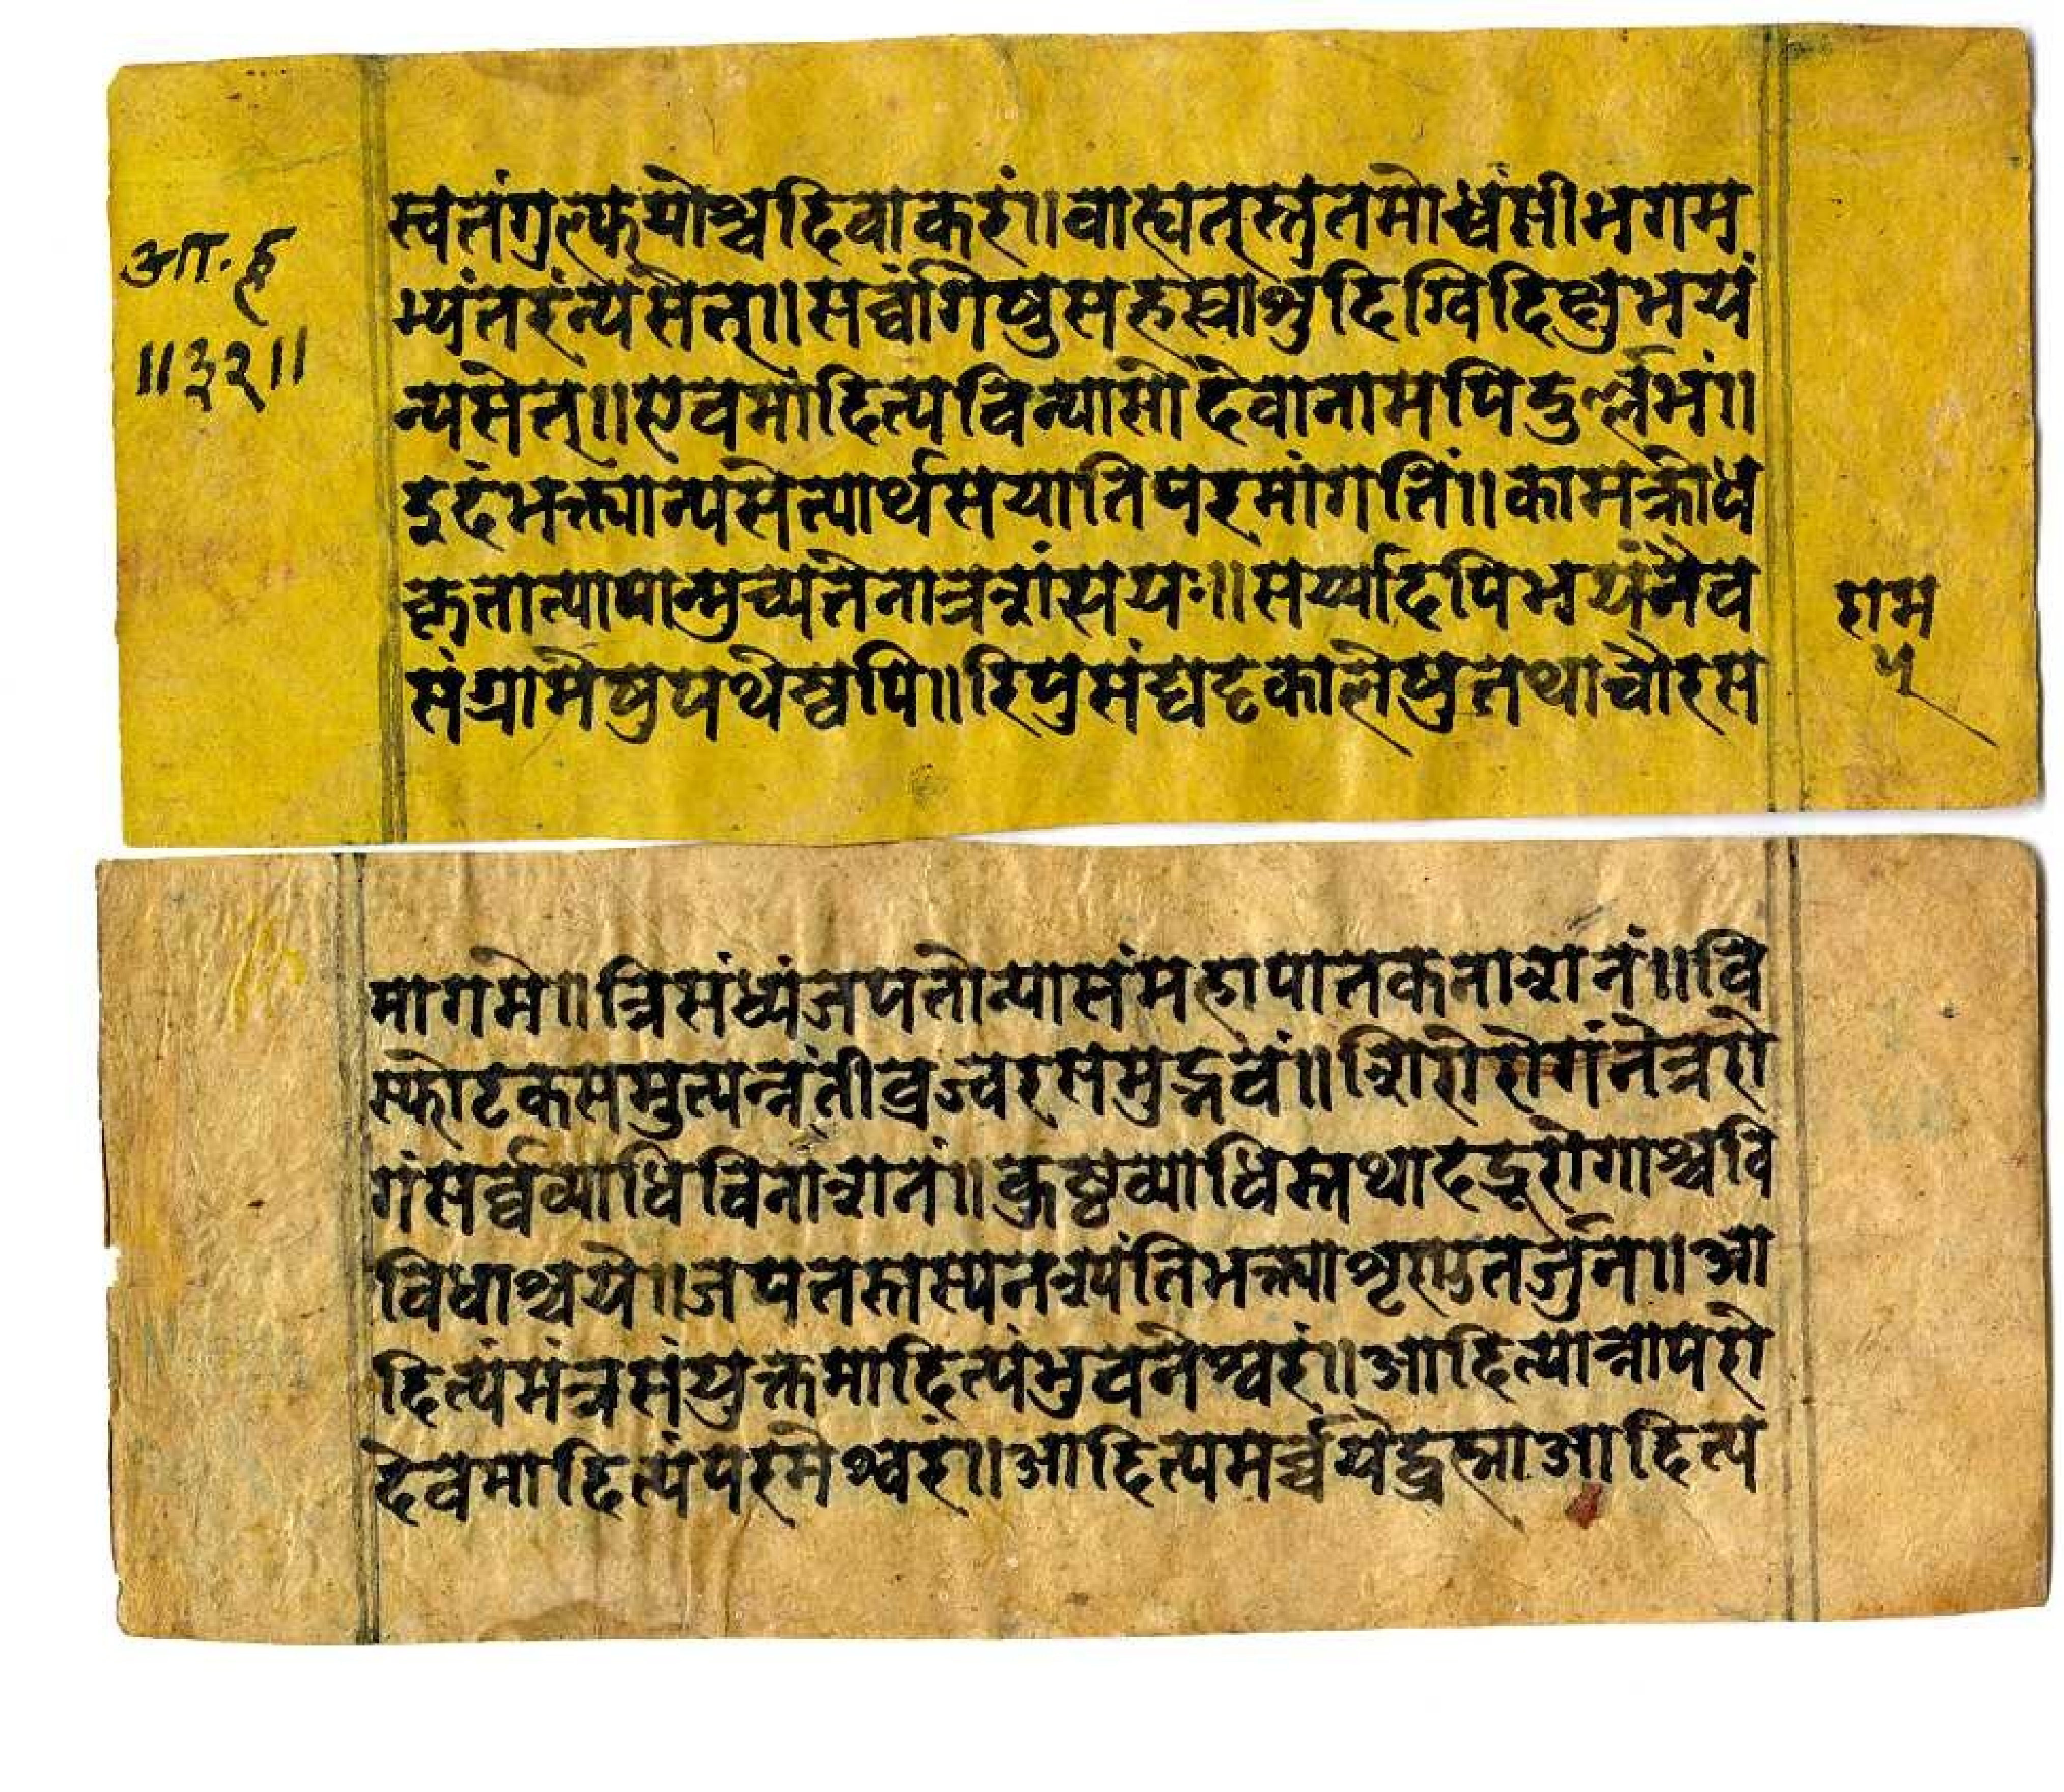 आ.हृ
॥३२॥
स्वतंगुल्फयोश्चदिवाकरं॥वाह्यतस्तुतमोध्वंसीभगम
भ्यंतरंन्यसेत्॥सर्वांगेषुसहस्रांशुदिग्विदिक्षुभयं
न्यसेत्॥एवमादित्यविन्यासोदेवानामपिदुर्ल्लभं॥
इदंभक्त्यान्यसेत्पार्थसयातिपरमांगतिं॥कामक्रोध
कृतात्पापान्मुच्यतेनात्रशंसयः॥सर्प्पादपिभयंनैव
संग्रामेषुपथेस्वपि॥रिपुसंघट्टकालेषुतथाचौरस
राम
५
मागमे॥त्रिसंध्यंजपतोन्यासंमहापातकनाशनं॥वि
स्फोटकसमुत्पन्नंतीव्रज्वरसमुद्भवं॥शिरोरोगंनेत्ररो
गंसर्व्वव्याधिविनाशनं॥कुष्ठव्याधिस्तथादद्रूरोगाश्चवि
विधाश्चये॥जपतस्तस्यनश्यंतिभक्त्याशृणुतर्जुन॥आ
दित्यंमंत्रसंयुक्तमादित्यंभुवनेश्वरं॥आदित्यान्नापरो
देवमादित्यंपरमेश्वरं॥आदित्यमर्च्चयेद्ब्रह्माआदित्य